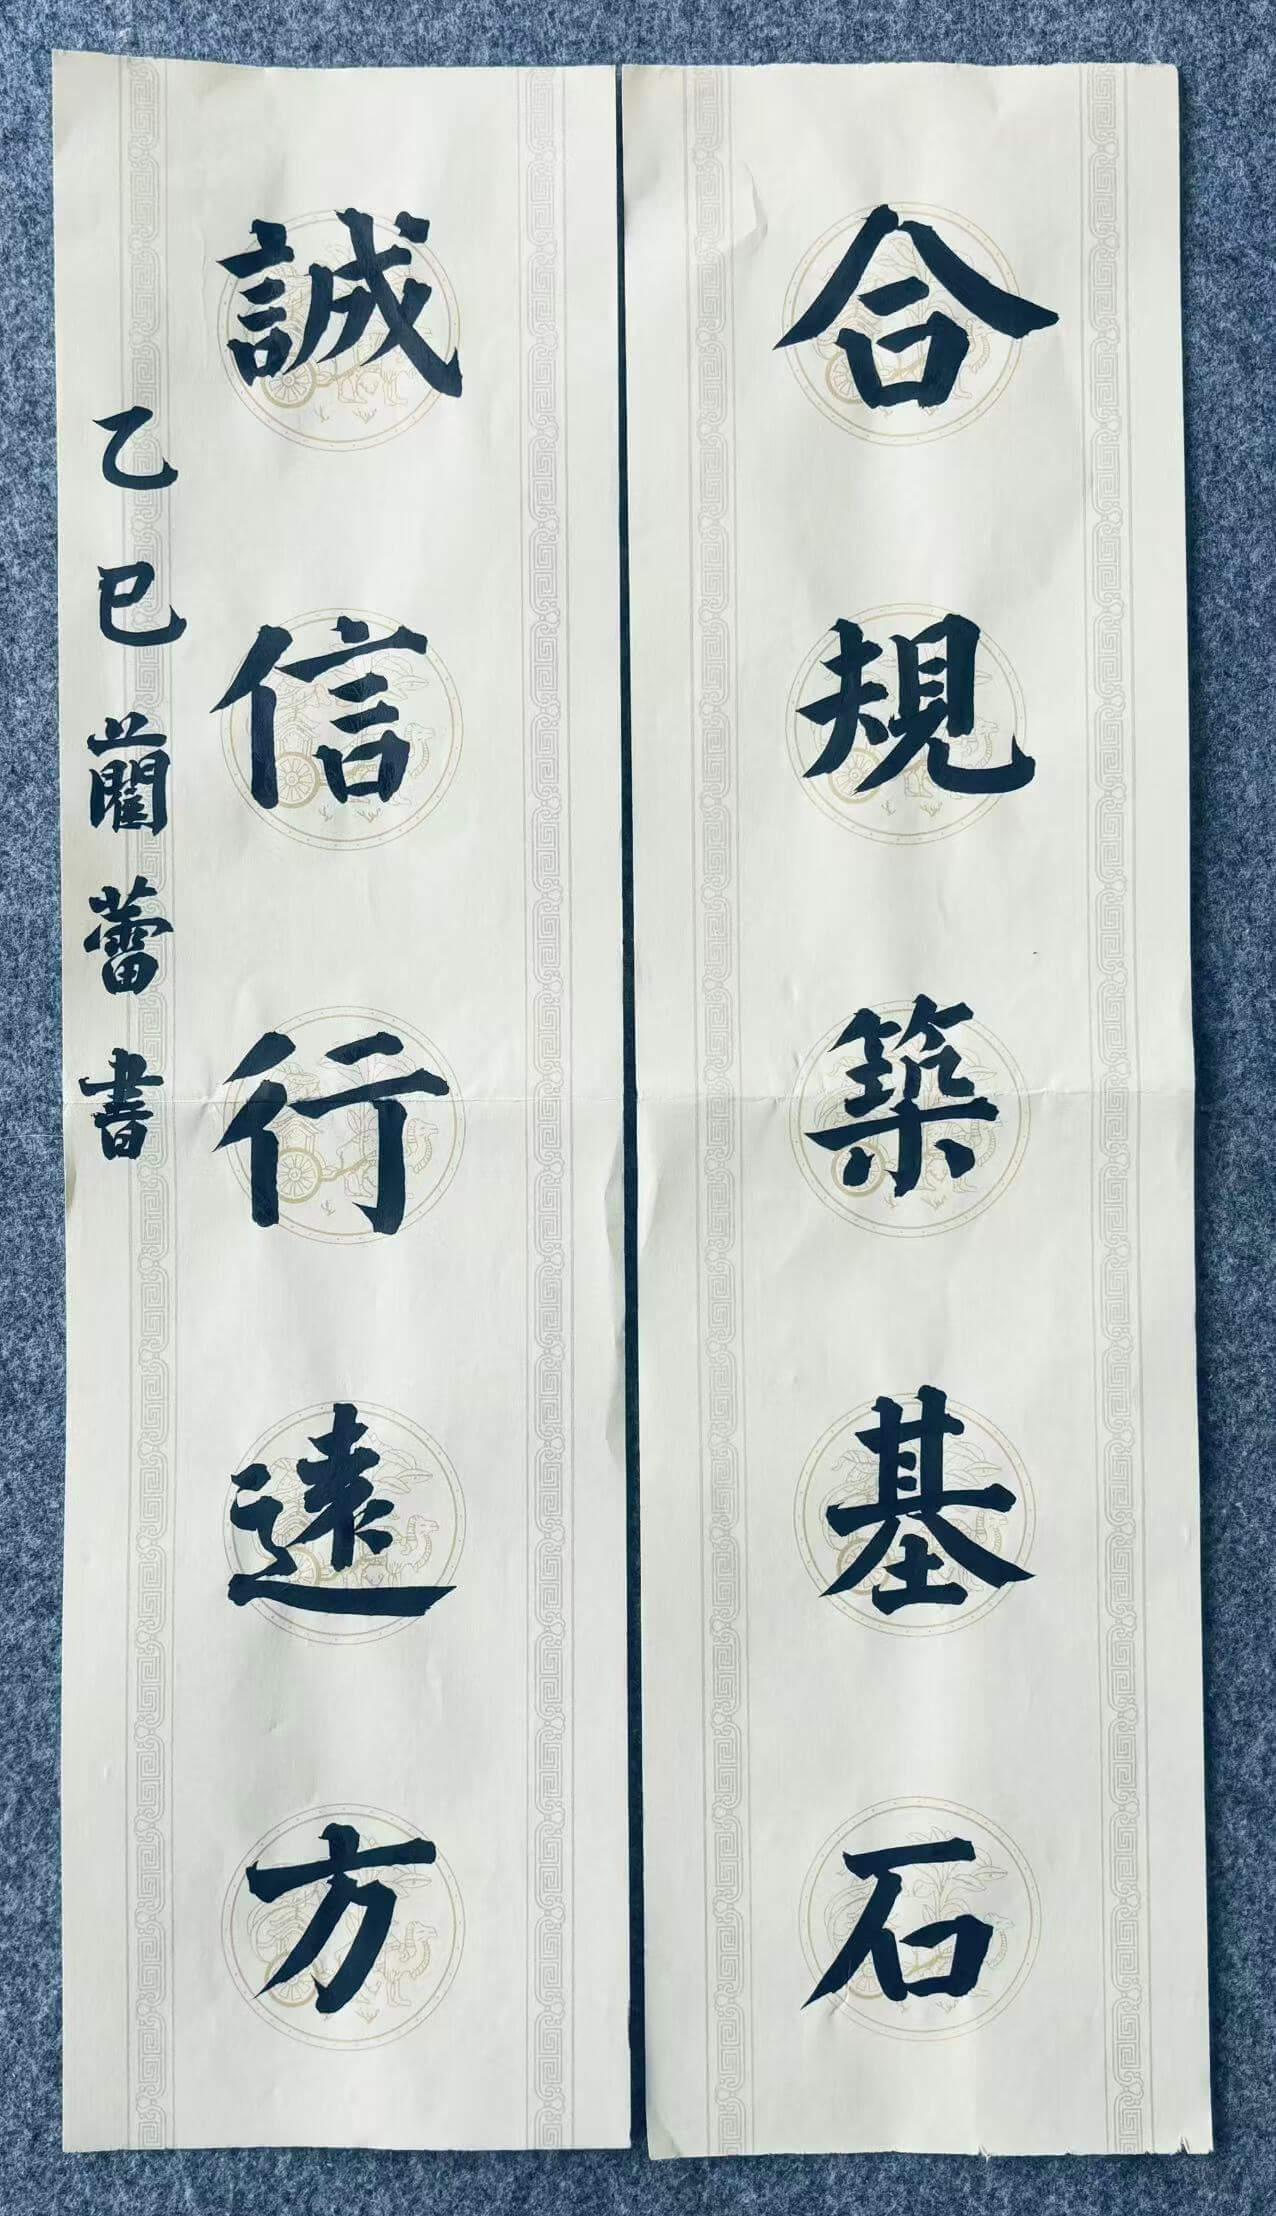 合規築基石
誠信行遠方
乙巳蘭蕾書